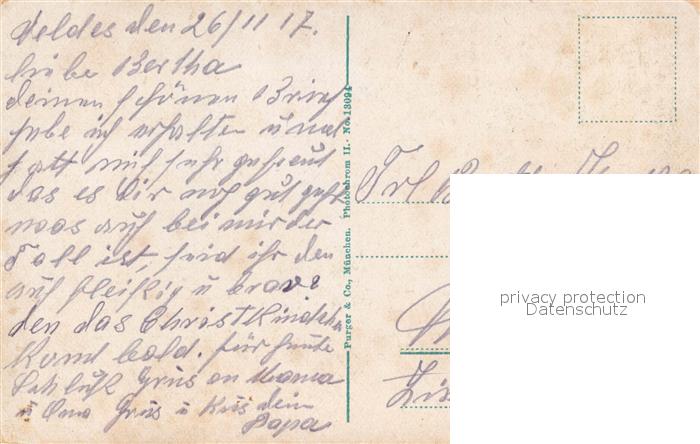 Veldes den 26/11 17.
liebe Bertha
deinen schönen Brief
habe ich erhalten u. mich
hatt mich sehr gefreut
das es dir noch gut geht
was auch bei mir der
Fall ist, seid ihr den
auch fleißig u brav
den das Christkindchen
komt bald. für heute
Gruss an Mama
u Oma Grüs u Kus dein
Papa
Purger & Co., München. Photochrom II.- No. 13094
Frl
privacy protection
Datenschutz